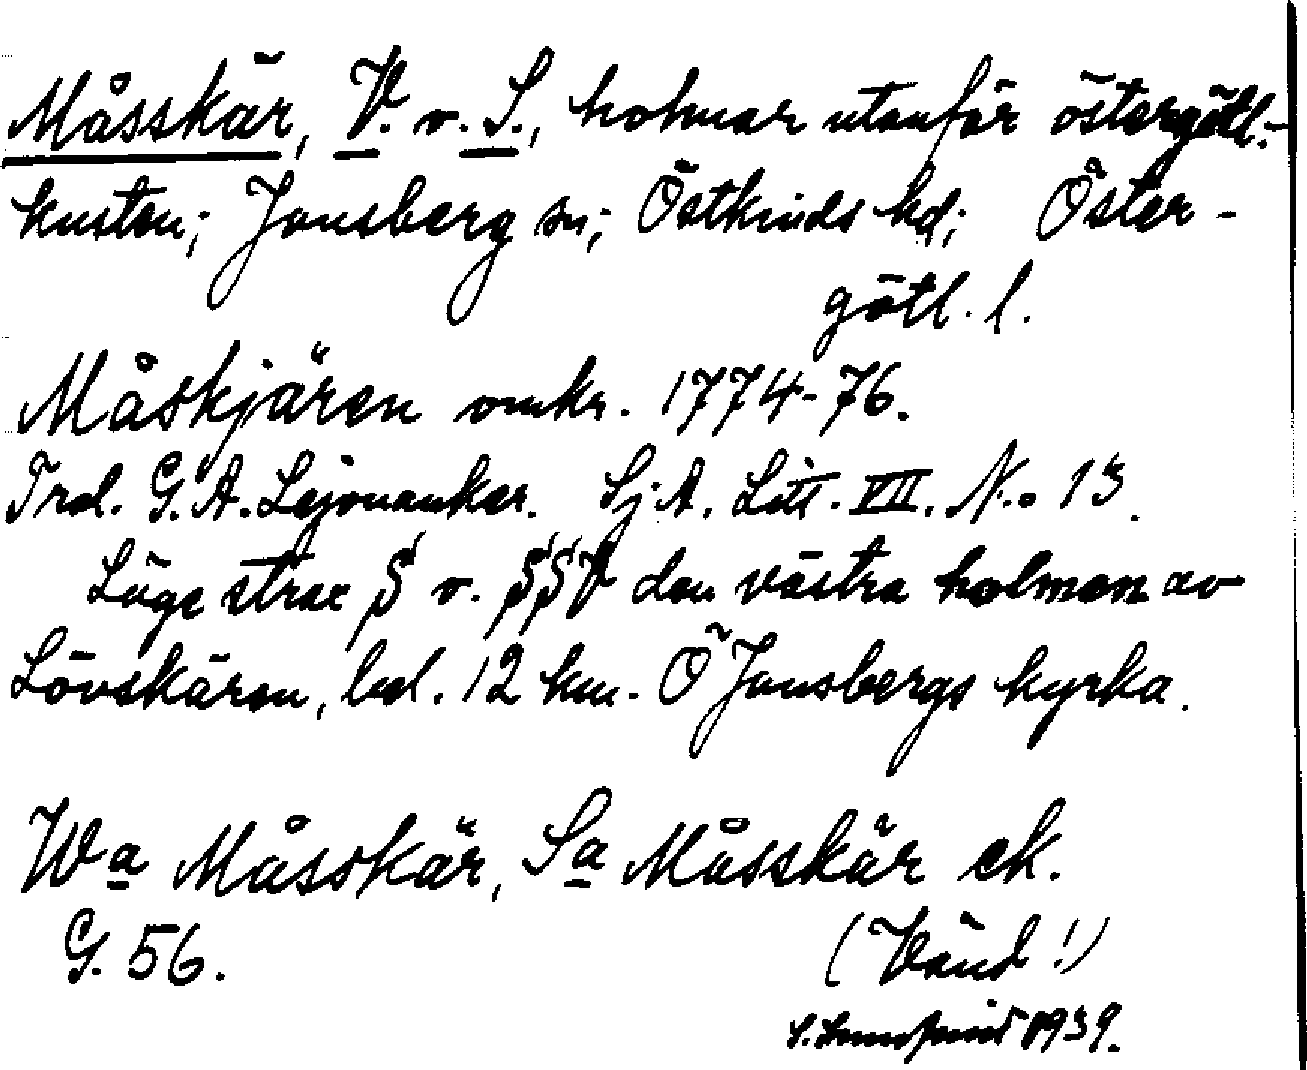 Måsskär, V. o. S., holmar utanför östergötl.-
kusten; Jonsberg sn; Östkinds hd; Öster-
götl. l.
Måskjären omkr. 1774-76.
Trol. G. A. Lejonanker. Sj. A. Litt. VII. N:o 13.
Läge strax S o. SSV den västra holmen av
Lövskären, bel. 12 km. Ö Jonsbergs kyrka.
Wa Måsskär, Sa Måsskär ek.
G. 56.
(Vänd!)
1939.